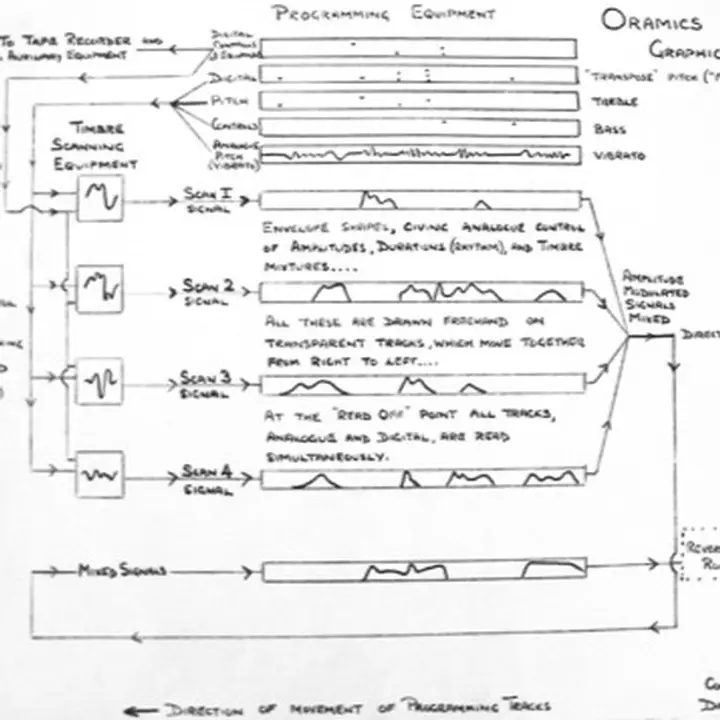 PROGRAMMING EQUIPMENT
ORAMICS
GRAPHIC
TO TAPE RECORDER AND
AUXILIARY EQUIPMENT
DIGITAL
CONTROLS
DIGITAL
"TRANSPOSE" PITCH
PITCH
TREBLE
CONTROLS
BASS
ANALOGUE
PITCH
(VIBRATO)
VIBRATO
TIMBRE
SCANNING
EQUIPMENT
SCAN 1
SIGNAL
ENVELOPE SHAPES, GIVING ANALOGUE CONTROL
OF AMPLITUDES, DURATIONS (RHYTHM), AND TIMBRE
MIXTURES....
SCAN 2
SIGNAL
AMPLITUDE
MODULATED
SIGNALS
MIXED
ALL THESE ARE DRAWN FREEHAND ON
TRANSPARENT TRACKS, WHICH MOVE TOGETHER
FROM RIGHT TO LEFT....
DIRECT
SCAN 3
SIGNAL
AT THE "READ OFF" POINT ALL TRACKS,
ANALOGUE AND DIGITAL, ARE READ
SIMULTANEOUSLY.
SCAN 4
SIGNAL
MIXED SIGNALS
REVER
DIRECTION OF MOVEMENT OF PROGRAMMING TRACKS